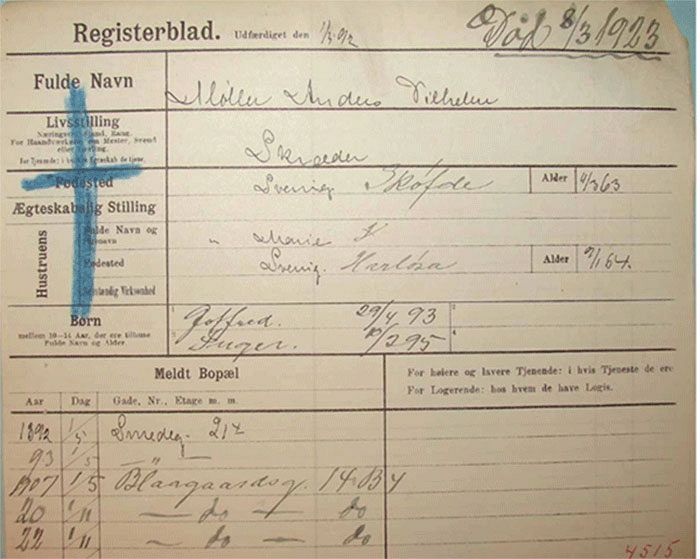 Registerblad. Udfærdiget den 1/5 92 Død 8/3 1923
Fulde Navn Møller Anders Vilhelm
Livsstilling
Næringsvei, Stand, Rang.
For Haandværkere om Mester, Svend
eller Lærling.
For Tjenende: i hvilken Egenskab de tjene.
Skræder
Fødested Sverrig Skøfde Alder 4/3 63
Ægteskabelig Stilling
Hustruens
Fulde Navn og Pigenavn " Marie K
Fødested Sverrig. Harlösa Alder 9/1 64.
Selvstandig Virksomhed
Børn
mellem 10-14 Aar, der ere tilhuse
Fulde Navn og Alder.
1 Goffred. 29/4 93 2
3 Inger. 10/2 95 4
Meldt Bopæl
For høiere og lavere Tjenende: i hvis Tjeneste de ere
For Logerende: hos hvem de have Logis.
Aar Dag Gade, Nr., Etage m. m.
1892 1/5 Smedeg. 21
93 1/5 — " —
1907 1/5 Blaagaardsg. 14 B 4
20 1/11 — do — do
22 1/11 — do — do
4515